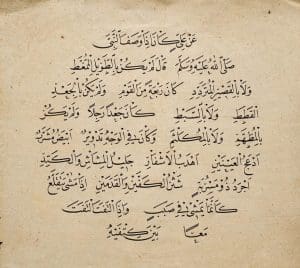 عَنْ عَلِيٍّ كَانَ إِذَا وَصَفَ النَّبِيَّ
صَلَّى اللهُ عَلَيْهِ وَسَلَّمَ قَالَ لَمْ يَكُنْ بِالطَّوِيلِ الْمُمَّغِطِ
وَلَا بِالْقَصِيرِ الْمُتَرَدِّدِ كَانَ رَبْعَةً مِنَ الْقَوْمِ وَلَمْ يَكُنْ بِالْجَعْدِ
الْقَطَطِ وَلَا بِالسَّبْطِ كَانَ جَعْدًا رَجِلًا وَلَمْ يَكُنْ
بِالْمُطَهَّمِ وَلَا بِالْمُكَلْثَمِ وَكَانَ فِي الْوَجْهِ تَدْوِيرٌ أَبْيَضُ مُشْرَبٌ
أَدْعَجُ الْعَيْنَيْنِ أَهْدَبُ الْأَشْفَارِ جَلِيلُ الْمُشَاشِ وَالْكَتَدِ
أَجْرَدُ ذُو مَسْرُبَةٍ شَثْنُ الْكَفَّيْنِ وَالْقَدَمَيْنِ إِذَا مَشَى تَقَلَّعَ
كَأَنَّمَا يَمْشِي فِي صَبَبٍ وَإِذَا الْتَفَتَ الْتَفَتَ
مَعًا بَيْنَ كَتِفَيْهِ